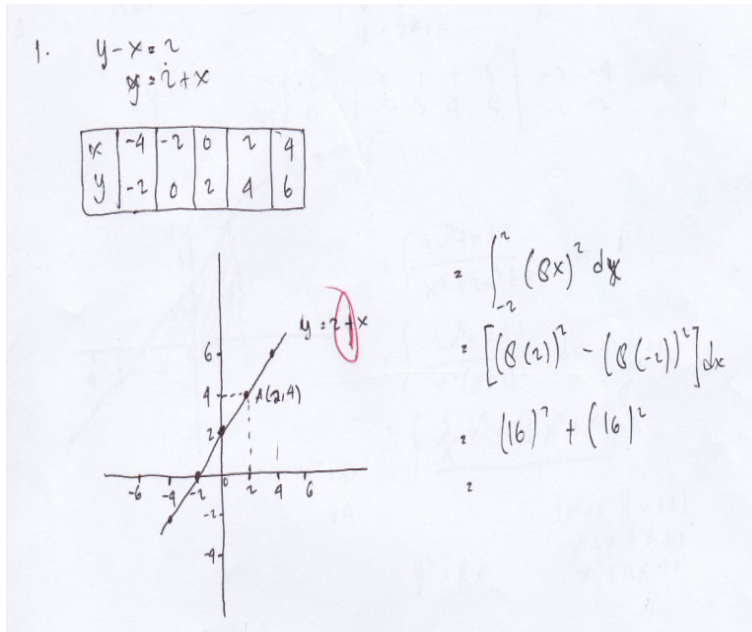 1. y - x = 2
y = 2 + x
x -4 -2 0 2 4
y -2 0 2 4 6
y = 2 + x
6
4 A(2,4)
2
-6 -4 -2 0 2 4 6
-2
-4
= ∫_{-2}^{2} (8x)² dx
= [(8(2))² - (8(-2))²] dx
= (16)² + (16)²
=